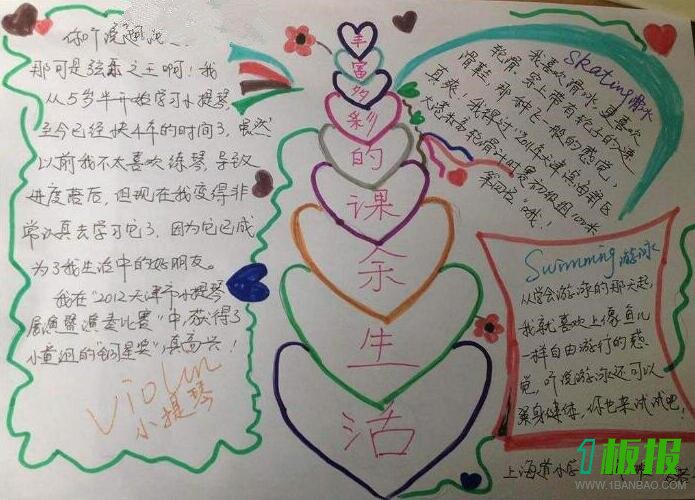 你听说过
那可是弦乐之王啊！我
从5岁半开始学习小提琴
至今已经快4年的时间了，虽然
以前我不太喜欢练琴，导致
进度落后，但现在我变得非
常认真去学习它了，因为它已成
为了我生活中的好朋友。
我在“2012天津市小提琴
展演暨演奏比赛”中，获得了
小童组的“钢星奖”，真高兴！
Violin
小提琴
丰
富
多
彩
的
课
余
生
活
Skating 滑冰
我喜欢滑冰，更喜欢
轮滑，穿上带有轮子的速
滑鞋，那种飞一般的感觉，
真爽，我得过“2011年天津滨海新区
大奖杯
第四名”哦！
Swimming 游泳
从学会游泳的那天起，
我就喜欢上像鱼儿
一样自由游行的感
觉，听说游泳还可以
强身健体，你也来试试吧！
上海道小学
1板报
WWW.1BANBAO.COM